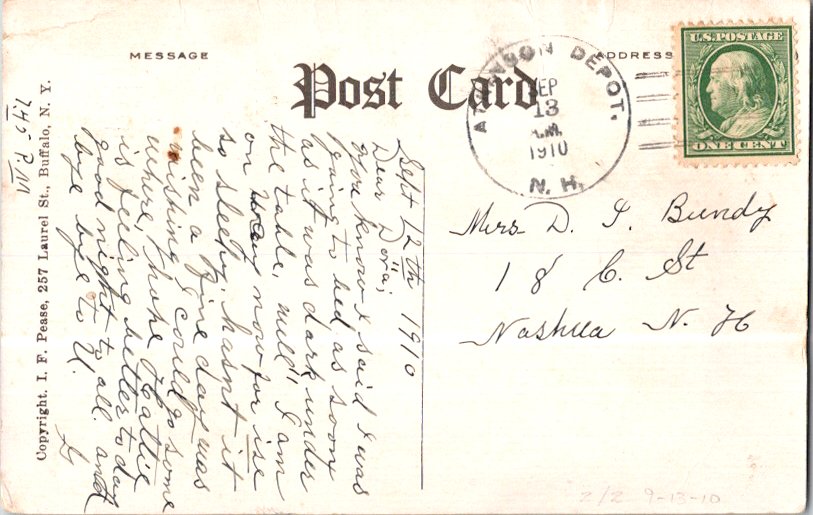 MESSAGE
Post Card
ADDRESS
U.S. POSTAGE
ONE CENT
ATKINSON DEPOT.
SEP
13
A.M.
1910
N. H.
Sept 12th 1910
Dear "Dora;
you know I said I was
going to bed as soon
as it was dark under
the table, well" I am
on now for ise
so sleepy, hasn't it
been a fine day was
wishing I could go some
where, I hope Hattie
is feeling better to day
good night to all and
bye bye to U.
G
7 45 P M
Mrs. D. S. Bundy
18 C. St
Nashua N. H
Copyright. I. F. Pease, 257 Laurel St., Buffalo, N. Y.
2/2 9-13-10